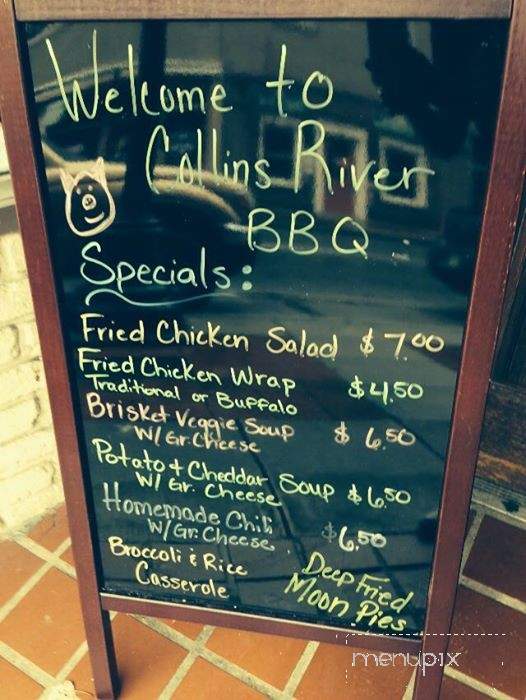 Welcome to
Collins River
BBQ
Specials:
Fried Chicken Salad $7.00
Fried Chicken Wrap $4.50
Traditional or Buffalo
Brisket Veggie Soup $6.50
W/Gr.Cheese
Potato + Cheddar Soup $6.50
W/Gr. Cheese
Homemade Chili $6.50
W/Gr.Cheese
Broccoli & Rice
Casserole
Deep Fried
Moon Pies
menupix